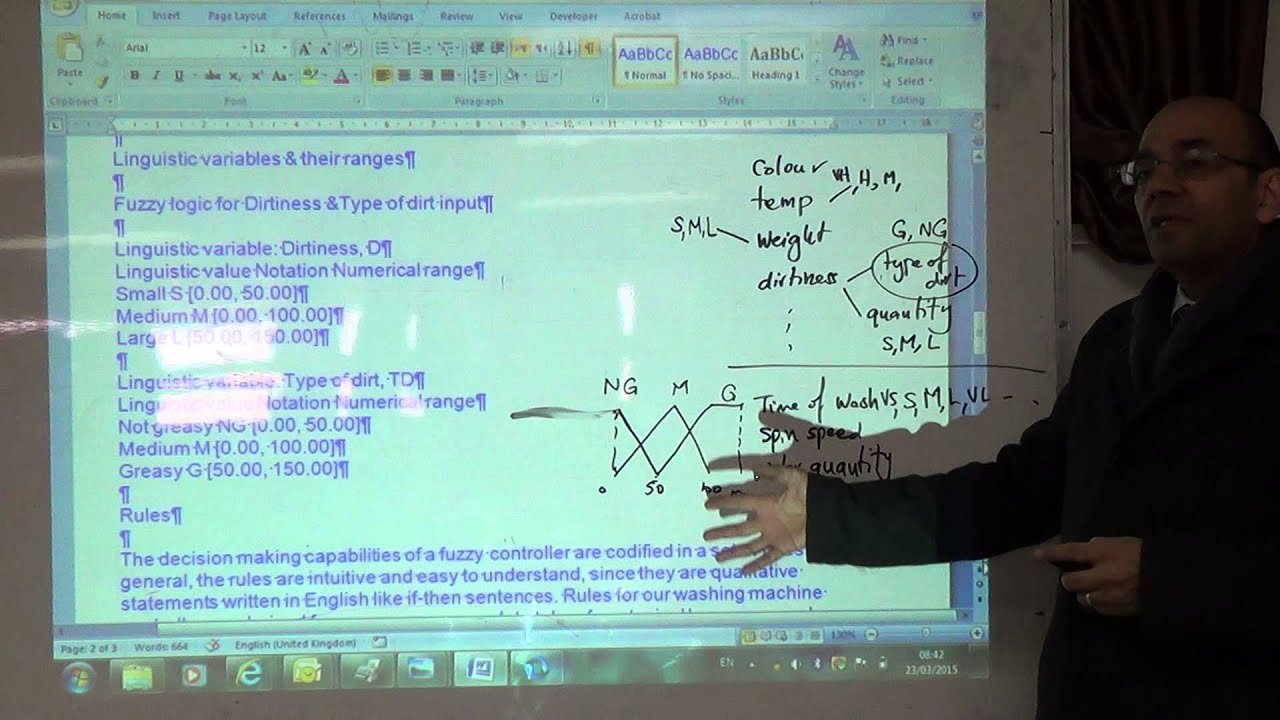 Home Insert Page Layout References Mailings Review View Developer Acrobat
Paste
Arial 12
AaBbCc AaBbCc AaBbCc
¶ Normal ¶ No Spaci... Heading 1
Change Styles
Find
Replace
Select
Clipboard Font Paragraph Styles Editing
1 2 3 4 5 6 7 8 9 10 11 12 13 14 15 16 17 18
¶
Linguistic variables & their ranges¶
¶
Fuzzy logic for Dirtiness & Type of dirt input¶
¶
Linguistic variable: Dirtiness, D¶
Linguistic value Notation Numerical range¶
Small S [0.00, 50.00]¶
Medium M [0.00, 100.00]¶
Large L [50.00, 150.00]¶
¶
Linguistic variable: Type of dirt, TD¶
Linguistic value Notation Numerical range¶
Not greasy NG [0.00, 50.00]¶
Medium M [0.00, 100.00]¶
Greasy G [50.00, 150.00]¶
¶
Rules¶
¶
The decision making capabilities of a fuzzy controller are codified in a
general, the rules are intuitive and easy to understand, since they are qualitative
statements written in English like if-then sentences. Rules for our washing machine
Colour
temp VH, H, M,
S, M, L weight
G, NG
dirtiness type of dirt
quantity
S, M, L
NG M G
0 50 100
Time of wash VS, S, M, L, VL - - .
spin speed
quantity
Page: 2 of 3 Words: 664 English (United Kingdom) 130%
EN 08:42
23/03/2015